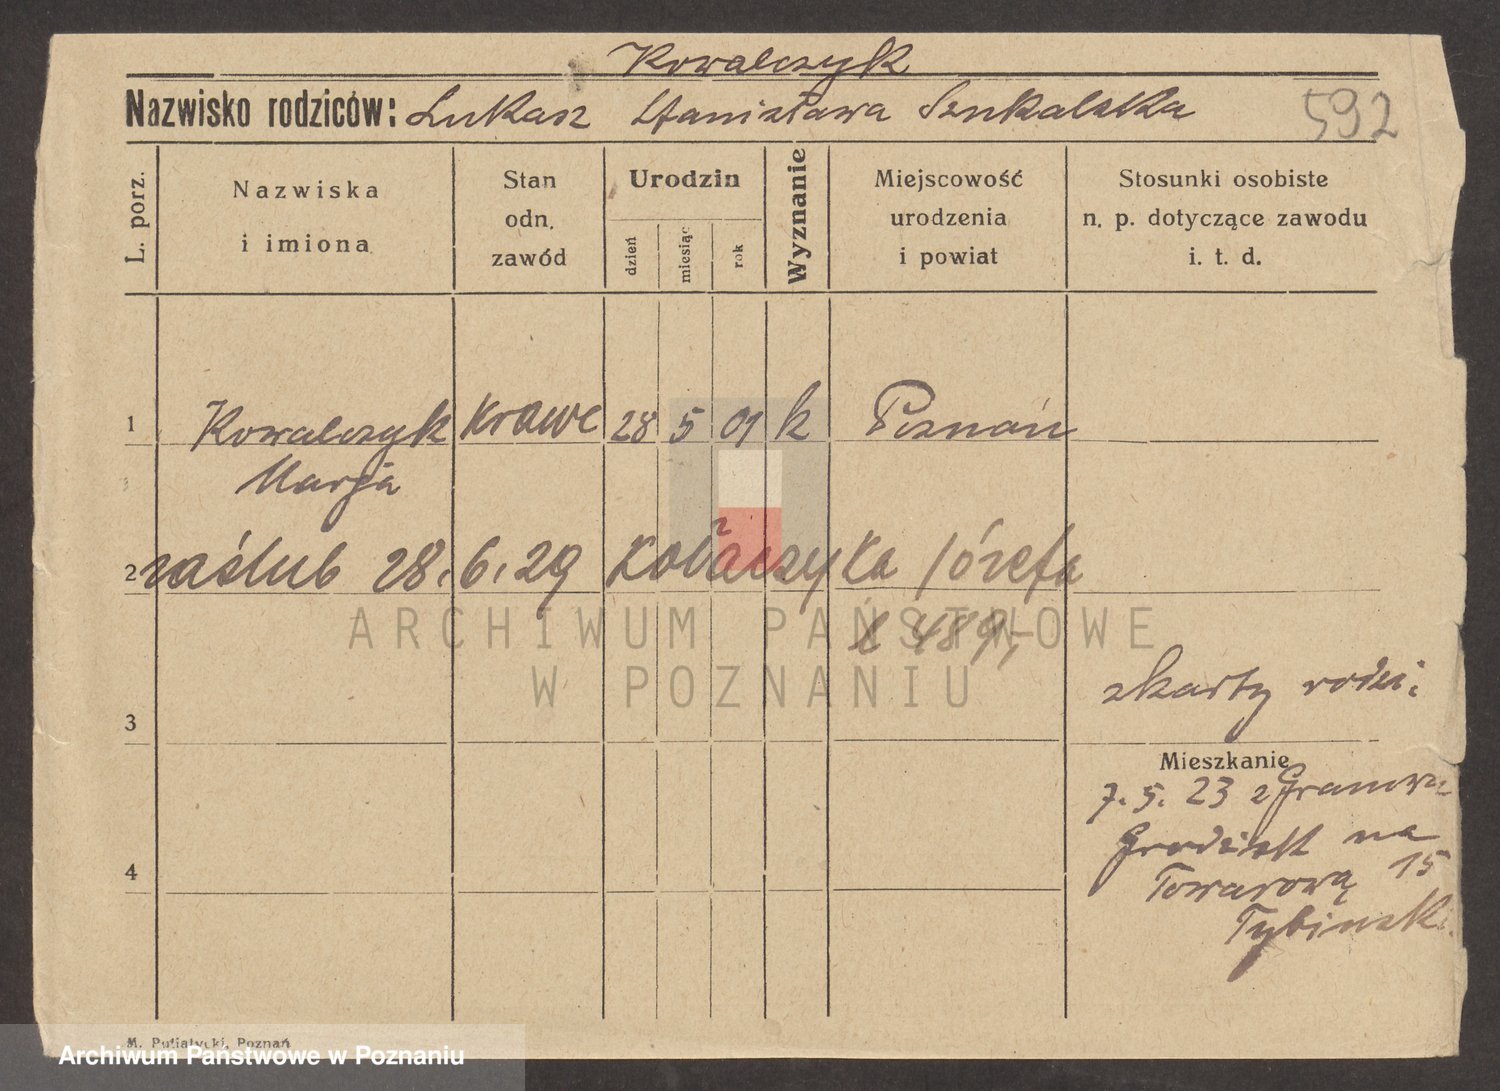 Kowalczyk
Nazwisko rodziców: Łukasz Stanisława Szukalska
592
L. porz.
Nazwiska
i imiona
Stan
odn.
zawód
Urodzin
dzień
miesiąc
rok
Wyznanie
Miejscowość
urodzenia
i powiat
Stosunki osobiste
n. p. dotyczące zawodu
i. t. d.
1 Kowalczyk krawc 28 5 01 k Poznań
Marja
2 zaślub 28.6.29 Józefa
489,-
z karty rodzi:
3
Mieszkanie
7.5.23 z Granowa
Grodzisk na
4
Towarową 15
Tybinsk.
M. Putiatycki, Poznań
ARCHIWUM PAŃSTWOWE
W POZNANIU
Archiwum Państwowe w Poznaniu